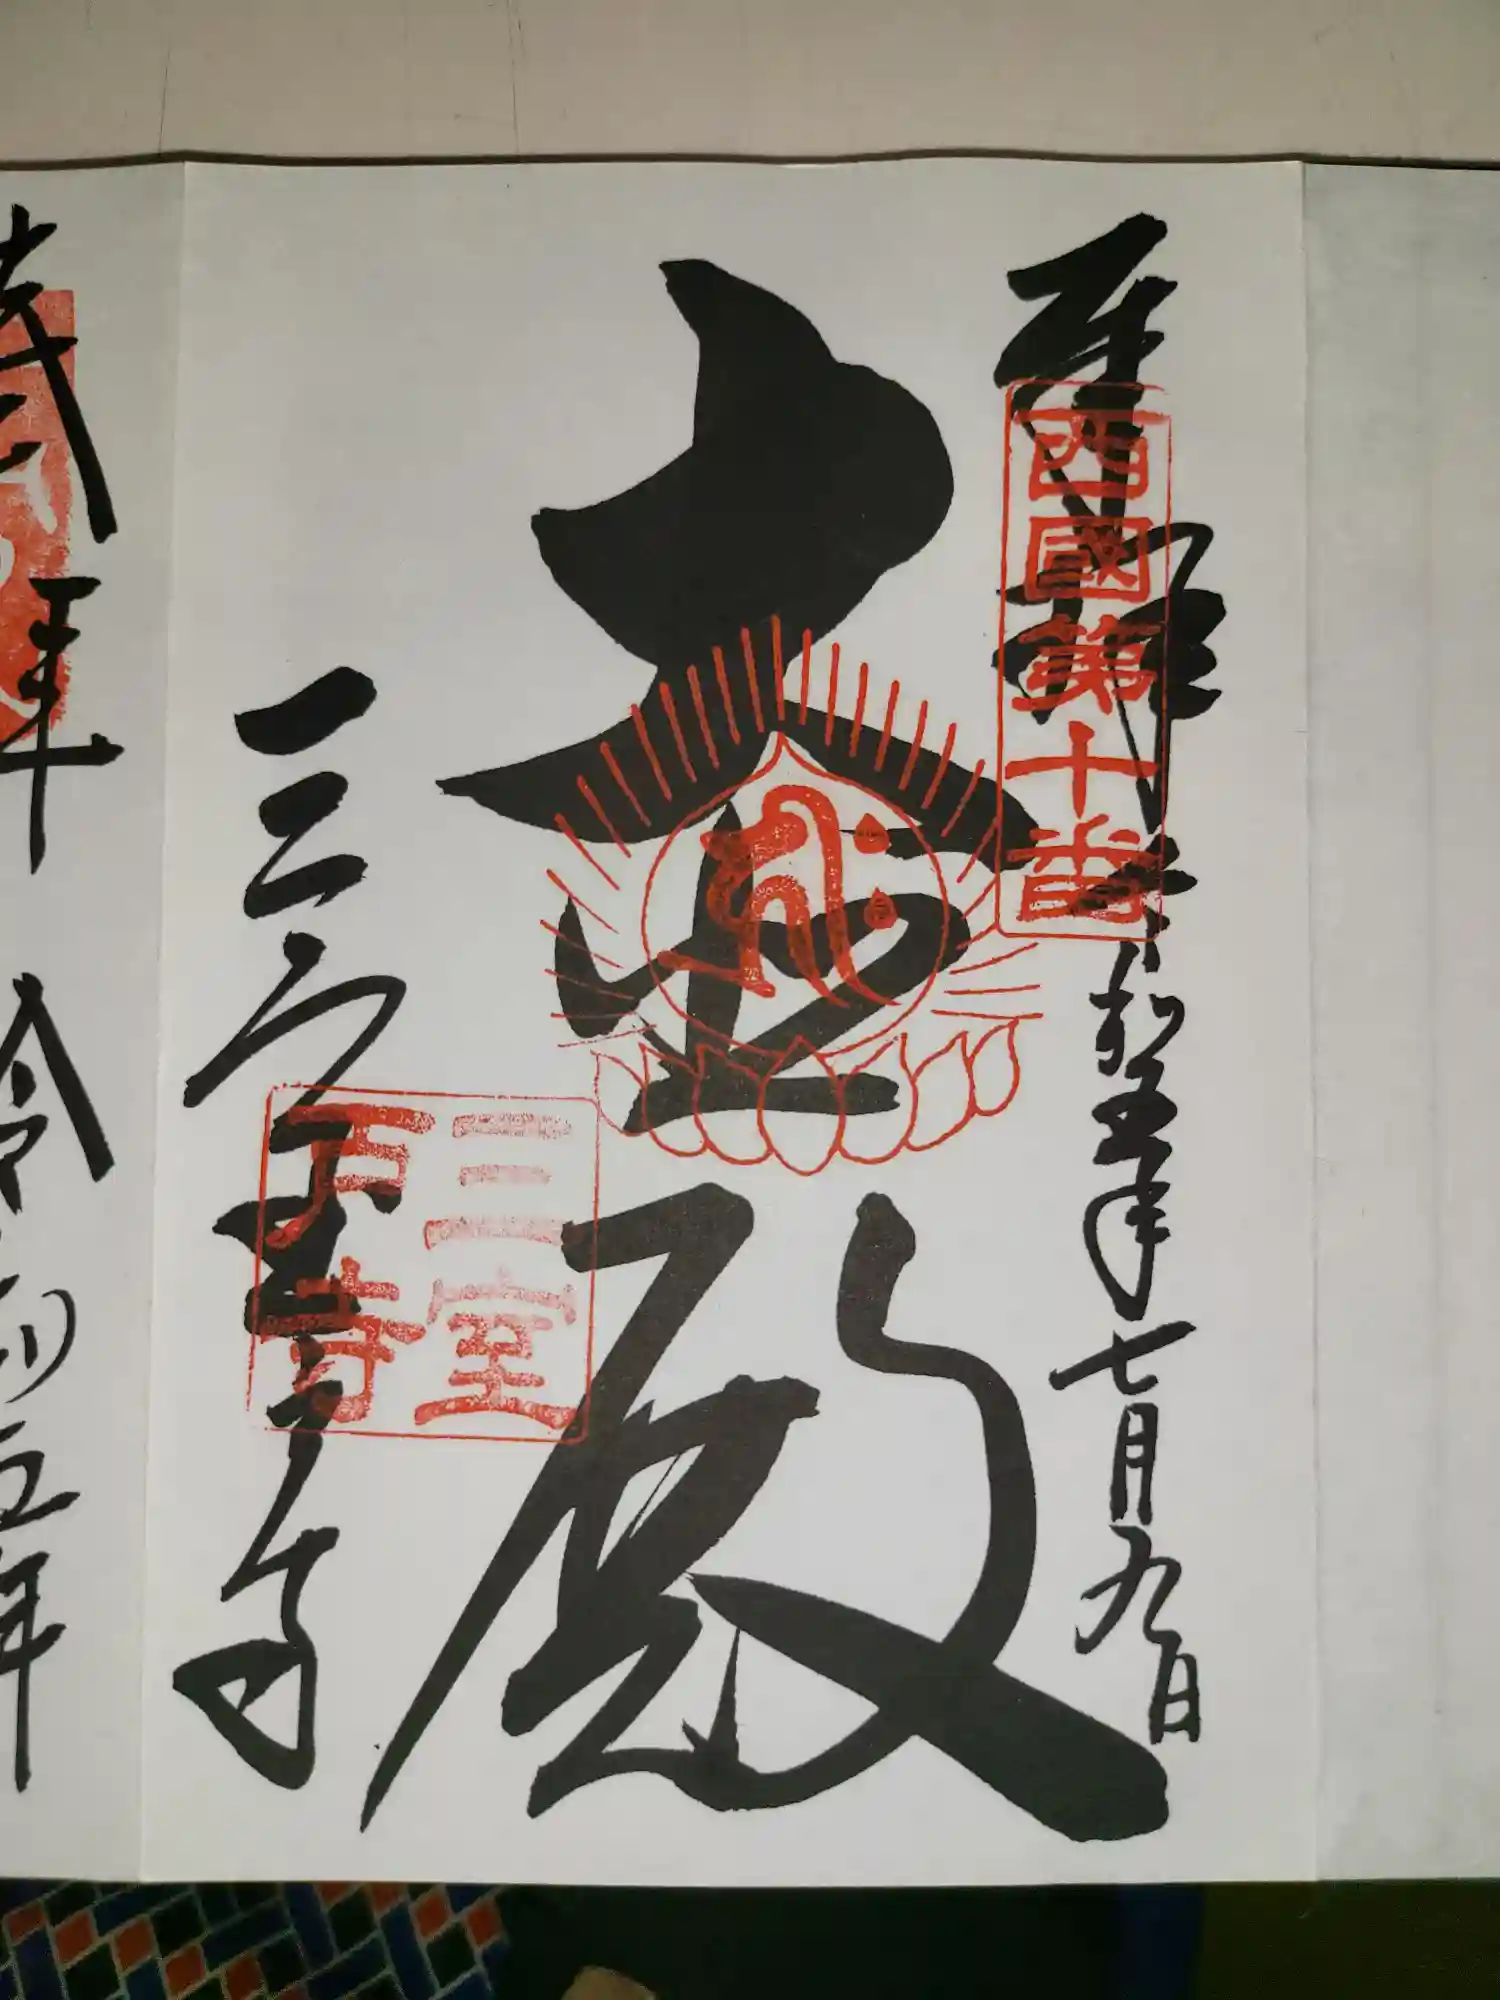 奉拝 令和五年七月九日
西國第十番
大悲殿
三室戸寺
三室
戸寺
年 令和五年